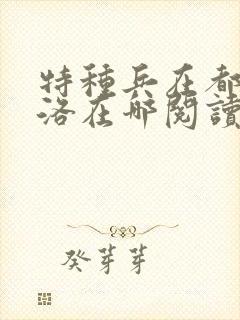 特種兵在都
洛在哪閱讀
癸芽芽